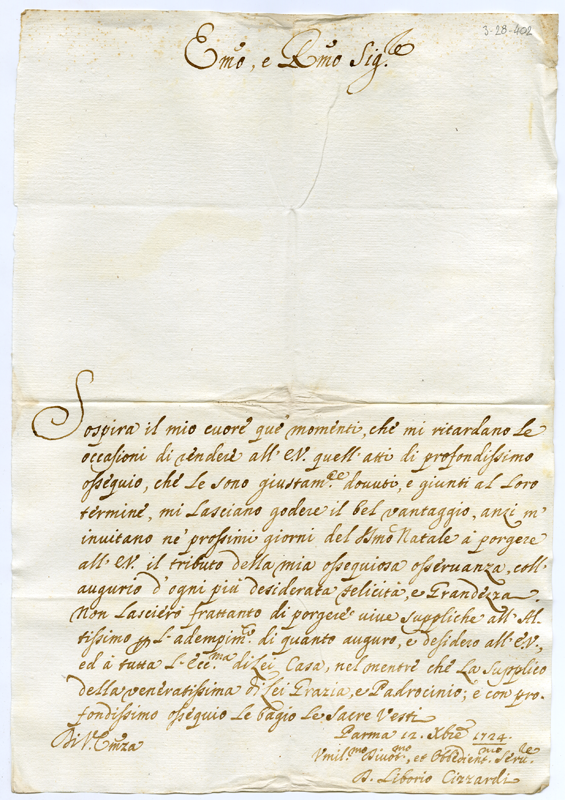 3-28-402
Emo, e Rmo Sig.re
Sospira il mio cuore que momenti, che mi ritardano le
occasioni di rendere all' E.V. quell' atti di profondissimo
ossequio, che le sono giustam.te dovuti, e giunti al loro
termine, mi lasciano godere il bel vantaggio, anzi m'
invitano ne' prossimi giorni del Smo Natale a porgere
all' E.V. il tributo della mia ossequiosa osservanza, coll'
augurio d'ogni più desiderata felicità, e Grandezza.
Non lascierò frattanto di porgere vive suppliche all' Al-
tissimo p l'adempim.to di quanto auguro, e desidero all' E.V.,
ed a tutta l'Ecc.ma di lei Casa, nel mentre che la supplico
della veneratissima di lei Grazia, e Padrocinio; e con pro-
fondissimo ossequio le bagio le Sacre Vesti
Di V. Emza
Parma 12. Xbre 1724.
Vmil.mo Diuot.mo, et Obbedient.mo Seru.re
D. Liborio Cizzardi